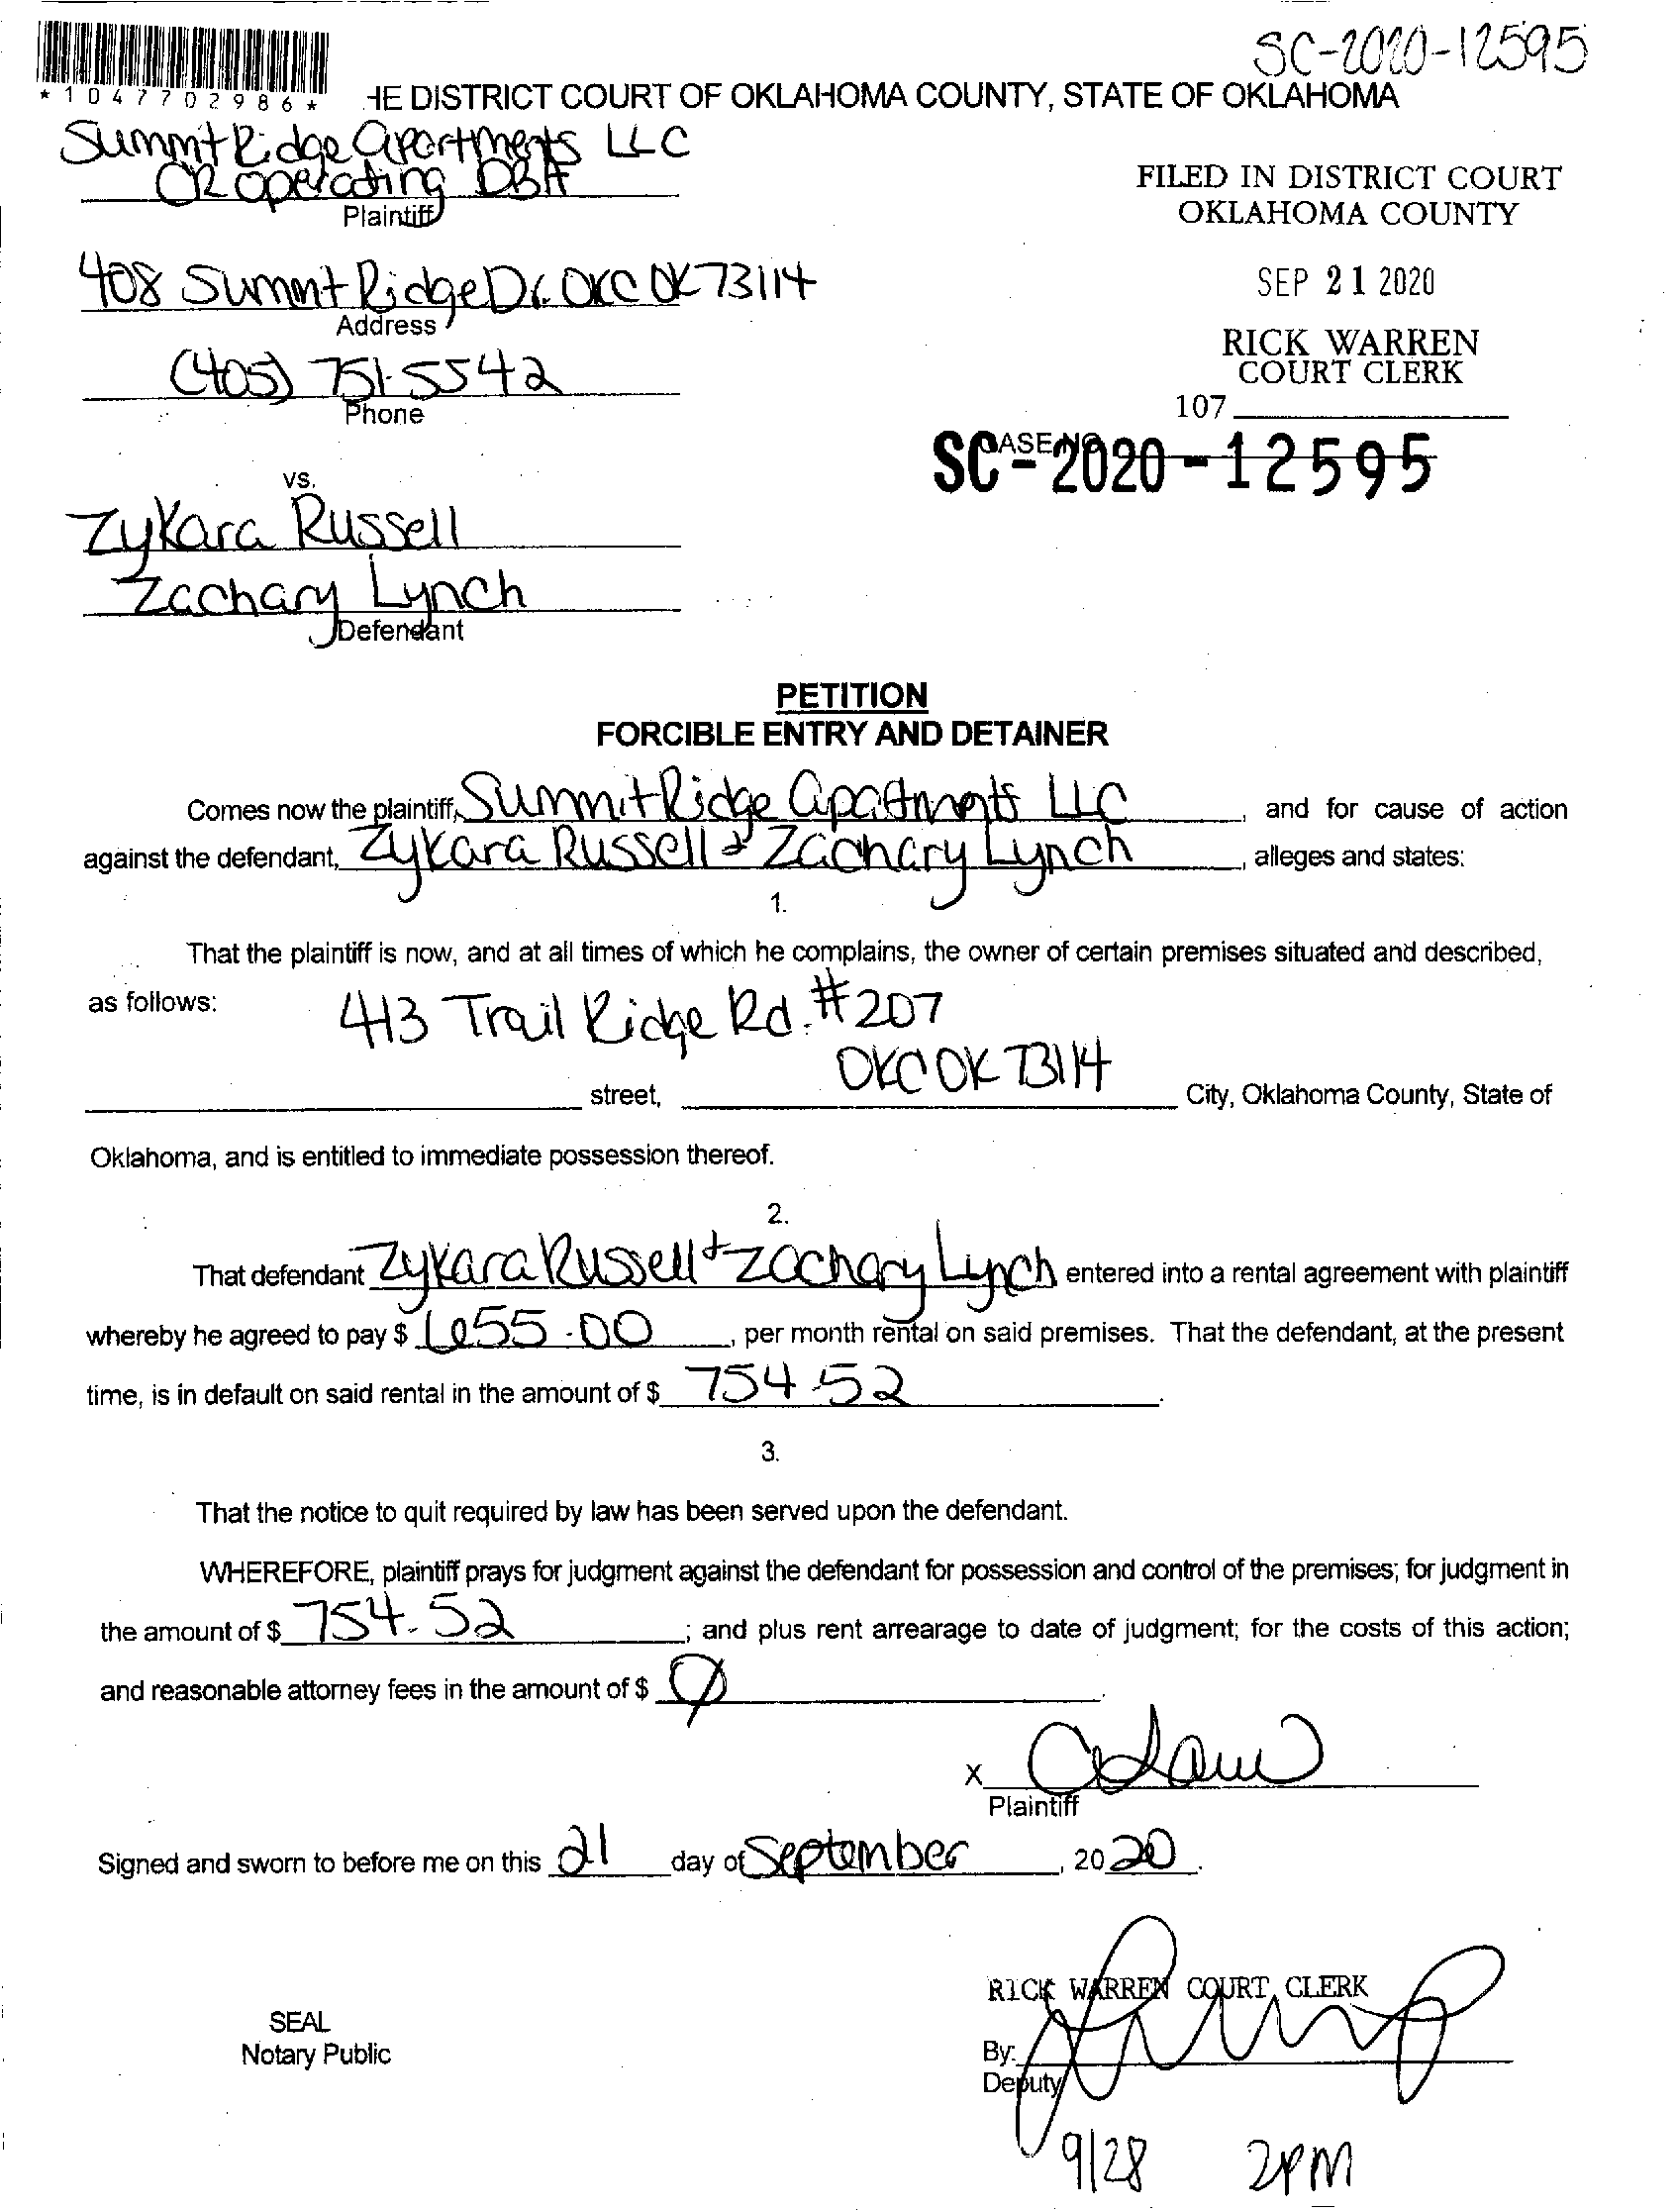 SC-2020-12595
*1047702986*
HE DISTRICT COURT OF OKLAHOMA COUNTY, STATE OF OKLAHOMA
Summit Ridge Apartments LLC
CR Operating DBA
Plaintiff
FILED IN DISTRICT COURT
OKLAHOMA COUNTY
408 Summit Ridge Dr. OKC OK 73114
Address
SEP 21 2020
(405) 751-5542
Phone
RICK WARREN
COURT CLERK
107
CASE NO
SC-2020-12595
vs.
Zykara Russell
Zachary Lynch
Defendant
PETITION
FORCIBLE ENTRY AND DETAINER
Comes now the plaintiff, Summit Ridge Apartments LLC, and for cause of action
against the defendant, Zykara Russell & Zachary Lynch, alleges and states:
1.
That the plaintiff is now, and at all times of which he complains, the owner of certain premises situated and described,
as follows: 413 Trail Ridge Rd. #207
OKC OK 73114
street, City, Oklahoma County, State of
Oklahoma, and is entitled to immediate possession thereof.
2.
That defendant Zykara Russell + Zachary Lynch entered into a rental agreement with plaintiff
whereby he agreed to pay $ 655.00, per month rental on said premises. That the defendant, at the present
time, is in default on said rental in the amount of $ 754.52.
3.
That the notice to quit required by law has been served upon the defendant.
WHEREFORE, plaintiff prays for judgment against the defendant for possession and control of the premises; for judgment in
the amount of $ 754.52; and plus rent arrearage to date of judgment; for the costs of this action;
and reasonable attorney fees in the amount of $ 0.
X
Plaintiff
Signed and sworn to before me on this 21 day of September, 2020.
RICK WARREN COURT CLERK
SEAL
Notary Public
By:
Deputy
9/28 2PM